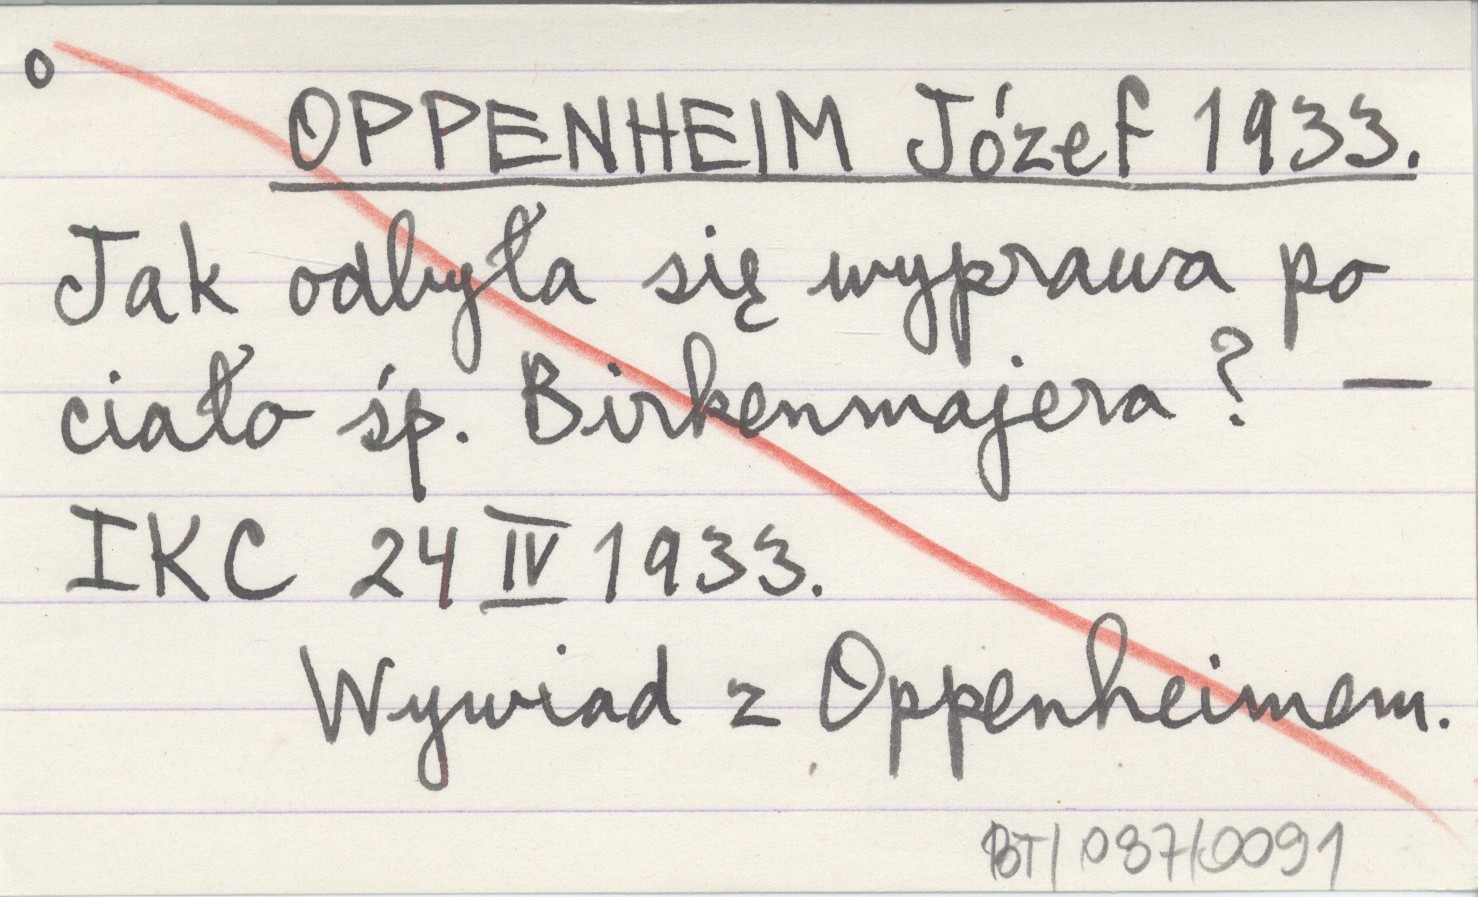 o
OPPENHEIM Józef 1933.
Jak odbyła się wyprawa po
ciało śp. Birkenmajera? —
IKC 24 IV 1933.
Wywiad z Oppenheimem.
BT/087/0091